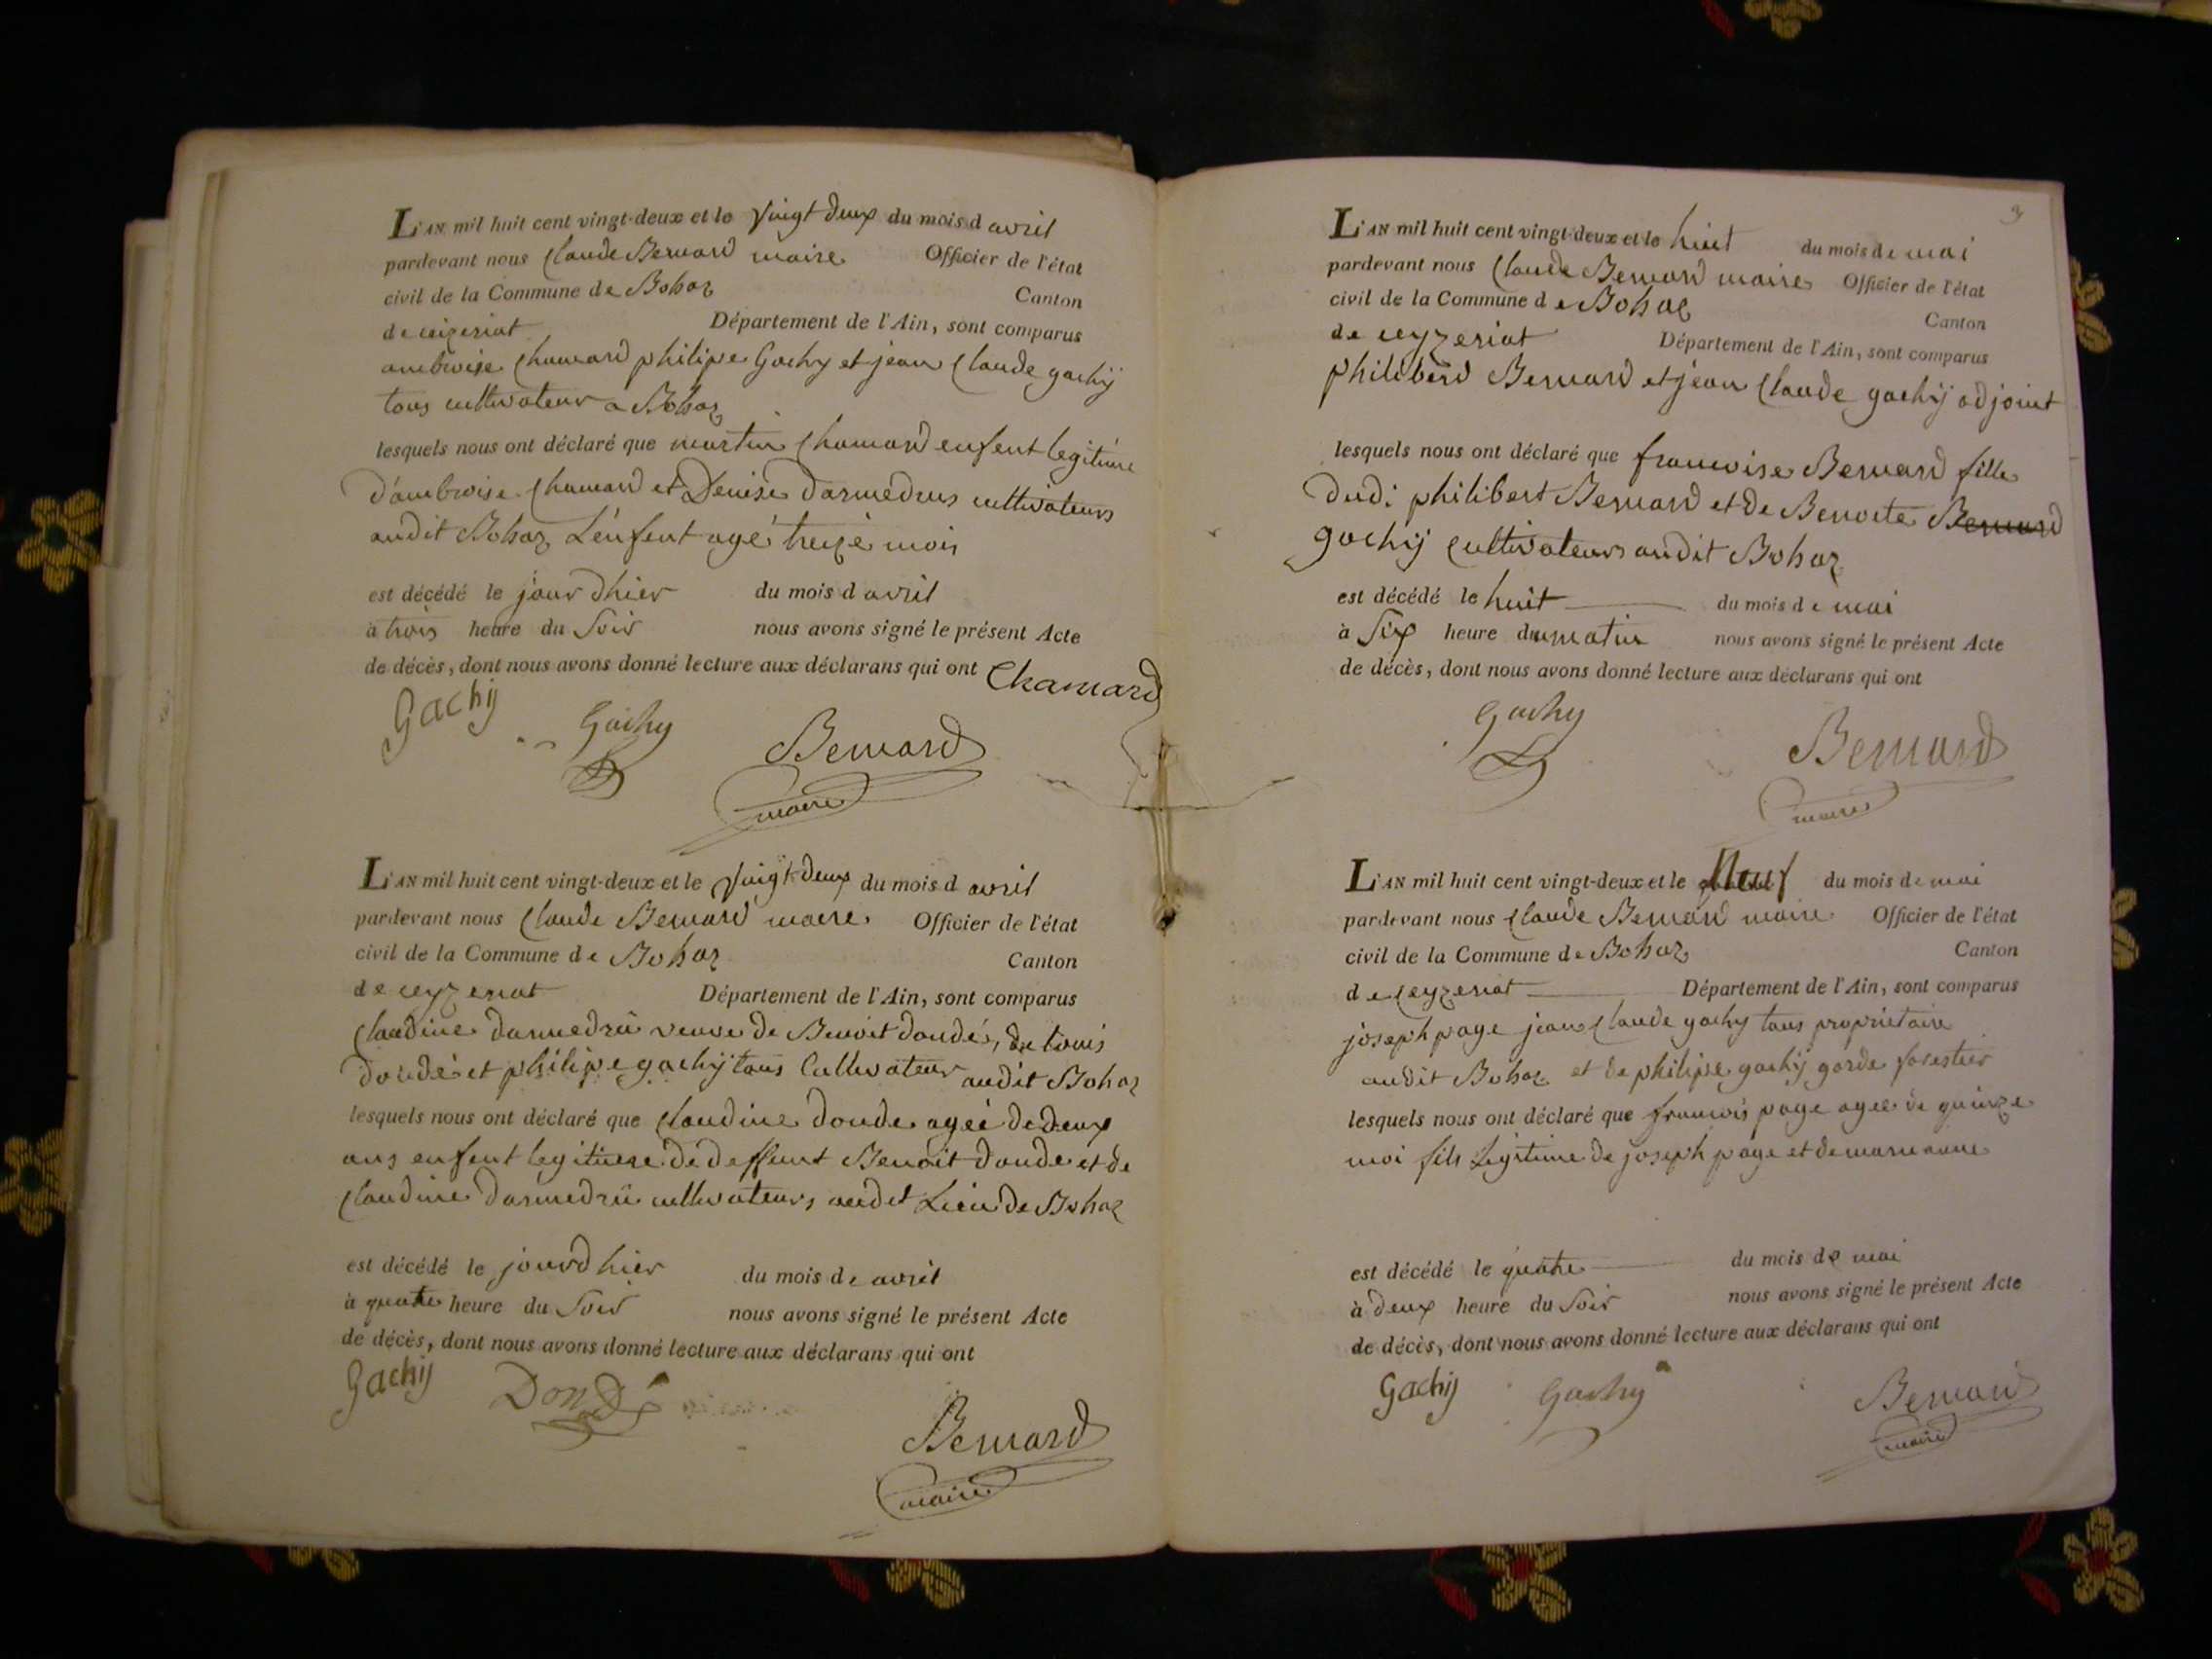 L'AN mil huit cent vingt-deux et le vingt deux du mois d avril
pardevant nous Claude Bernard maire Officier de l'état
civil de la Commune de Bohaz Canton
de ceizeriat Département de l'Ain, sont comparus
ambroise Chamard philipe Gachy et jean Claude gachÿ
tous cultivateur a Bohaz
lesquels nous ont déclaré que martin Chamard enfent legitime
d'ambroise Chamard et Denise darmedrus cultivateurs
audit Bohaz L'enfent agé treize mois
est décédé le jour dhier du mois d avril
à trois heure du Soir nous avons signé le présent Acte
de décès, dont nous avons donné lecture aux déclarans qui ont Chamard
Gachij Gachy Bernard
maire
L'AN mil huit cent vingt-deux et le vingt-deux du mois d avril
pardevant nous Claude Bernard maire Officier de l'état
civil de la Commune de Bohaz Canton
de ceyzeriat Département de l'Ain, sont comparus
Claudine darmedrû veuve de Benoit dondé,
dondé et philipe gachÿ tous Cultivateur audit Bohaz
lesquels nous ont déclaré que Claudine donde ageé de deux
ans enfent legitime de deffunt Benoit donde et de
Claudine darmedrû cultivateurs audet Lieu de Bohaz
est décédé le jourdhier du mois de avril
à quatre heure du Soir nous avons signé le présent Acte
de décès, dont nous avons donné lecture aux déclarans qui ont
Gachij Dondé
Bernard
maire
3
L'AN mil huit cent vingt-deux et le huit du mois de mai
pardevant nous Claude Bernard maire Officier de l'état
civil de la Commune de Bohaz Canton
de ceyzeriat Département de l'Ain, sont comparus
philiberd Bernard et jean Claude gachij adjoint
lesquels nous ont déclaré que francoise Bernard fille
dudi philibert Bernard et de Benoite Bernard
gachij Cultivateurs audit Bohaz
est décédé le huit du mois de mai
à Six heure du matin nous avons signé le présent Acte
de décès, dont nous avons donné lecture aux déclarans qui ont
Gachy Bernard
maire
L'AN mil huit cent vingt-deux et le Neuf du mois de mai
pardevant nous Claude Bernard maire Officier de l'état
civil de la Commune de Bohaz Canton
de Ceyzeriat Département de l'Ain, sont comparus
joseph page jean Claude gachy tous proprietaire
audit Bohaz et de philipe gachij garde forestier
lesquels nous ont déclaré que francois page ageé de quinze
moi fils Legitime de joseph page et de marie anne
est décédé le quatre du mois de mai
à deux heure du Soir nous avons signé le présent Acte
de décès, dont nous avons donné lecture aux déclarans qui ont
Gachij Gachy Bernard
maire